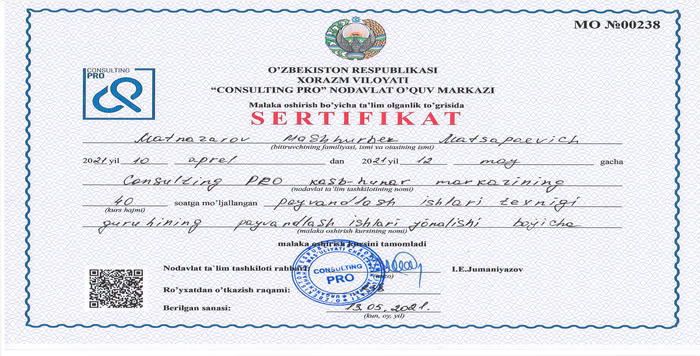 MO №00238
CONSULTING
PRO
O'ZBEKISTON RESPUBLIKASI
XORAZM VILOYATI
"CONSULTING PRO" NODAVLAT O'QUV MARKAZI
Malaka oshirish bo'yicha ta'lim olganlik to'g'risida
SERTIFIKAT
Matnazarov Mashhurbek Matsapaevich
(bitiruvchining familyasi, ismi va otasining ismi)
2021 yil 10 aprel dan 2021 yil 12 may gacha
Consulting PRO kasb-hunar markazining
(nodavlat ta'lim tashkilotining nomi)
40 soatga mo'ljallangan payvandlash ishlari texnigi
(kurs hajmi)
guruhining payvandlash ishlari yonalishi boyicha
(malaka oshirish kursining nomi)
malaka oshirish kursini tamomladi
Nodavlat ta`lim tashkiloti rahbari I.E.Jumaniyazov
(imzo)
CONSULTING
PRO
Ro'yxatdan o'tkazish raqami:
Berilgan sanasi: 13.05.2021.
(kun, oy, yil)